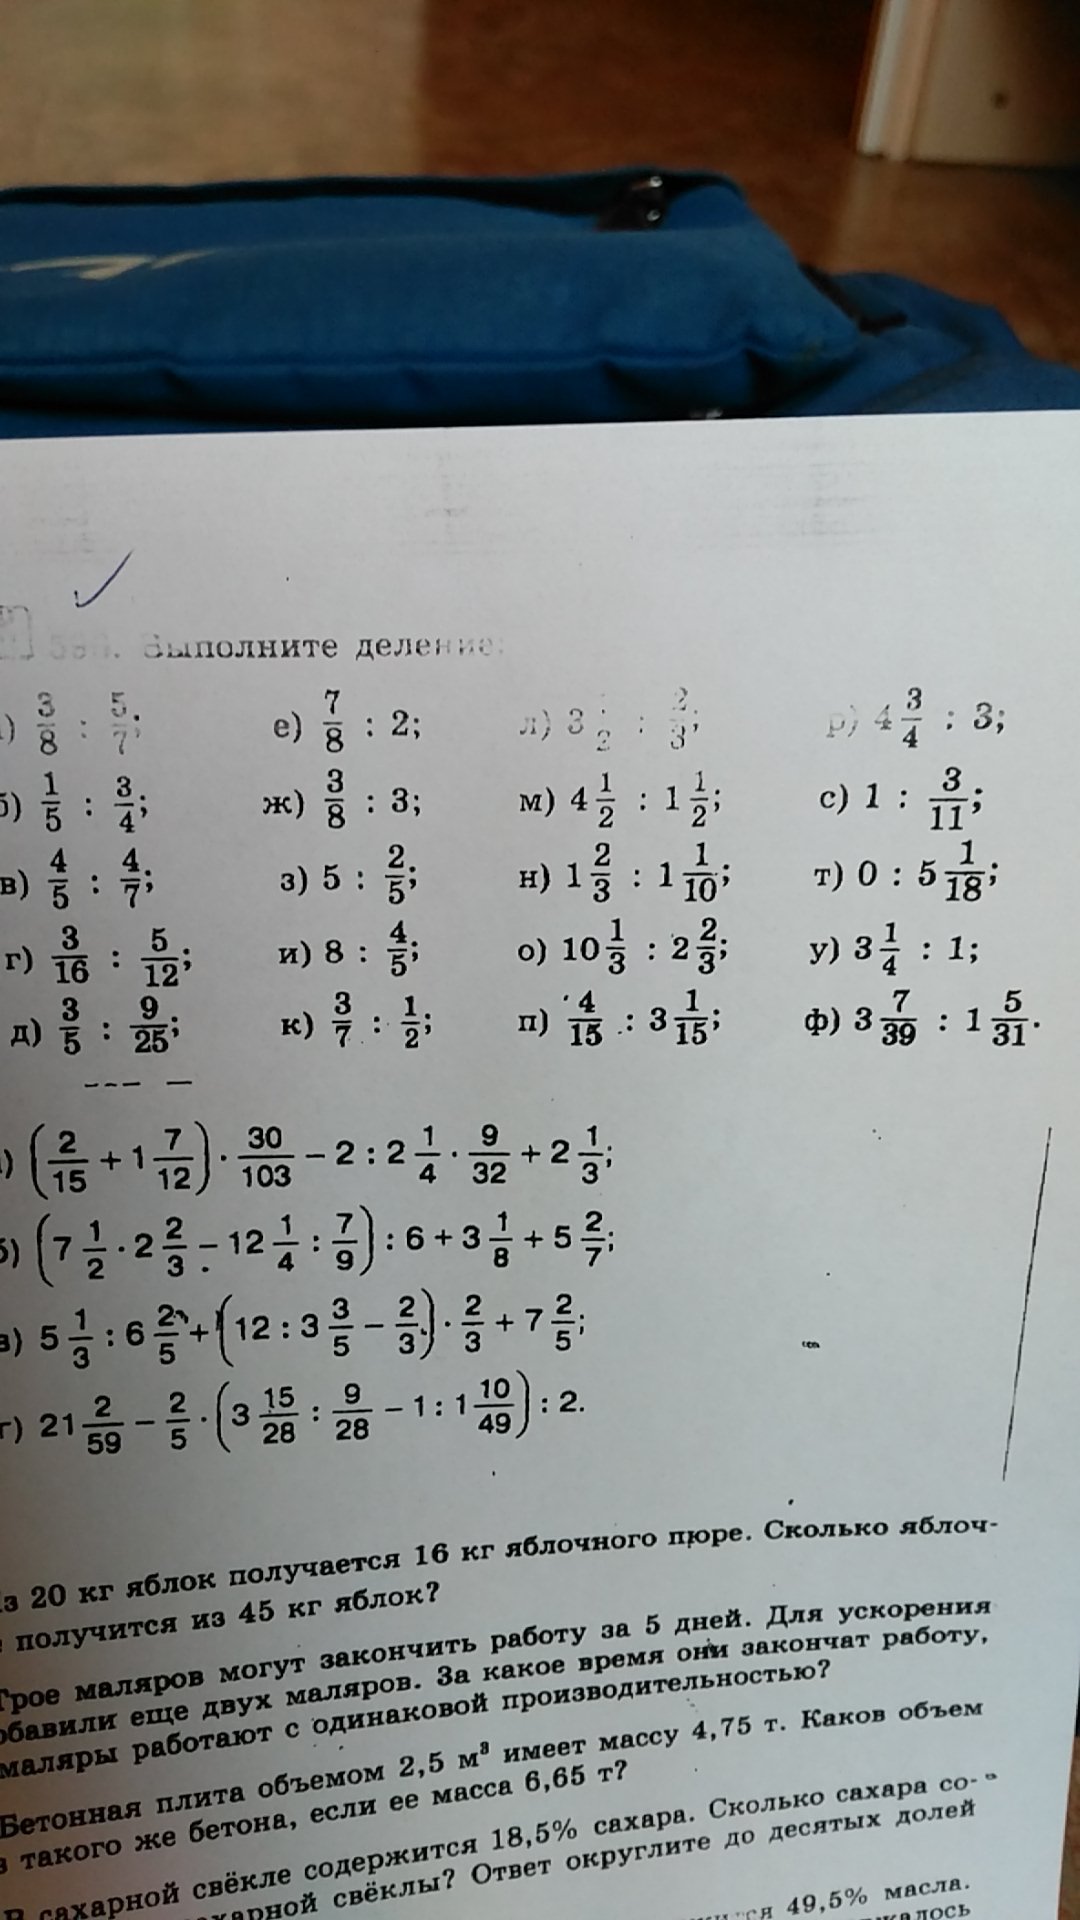 Выполните деление:
3/8 : 5/7; е) 7/8 : 2; л) 3 1/2 : 2/3; р) 4 3/4 : 3;
б) 1/5 : 3/4; ж) 3/8 : 3; м) 4 1/2 : 1 1/2; с) 1 : 3/11;
в) 4/5 : 4/7; з) 5 : 2/5; н) 1 2/3 : 1 1/10; т) 0 : 5 1/18;
г) 3/16 : 5/12; и) 8 : 4/5; о) 10 1/3 : 2 2/3; у) 3 1/4 : 1;
д) 3/5 : 9/25; к) 3/7 : 1/2; п) 4/15 : 3 1/15; ф) 3 7/39 : 1 5/31.
(2/15 + 1 7/12) · 30/103 − 2 : 2 1/4 · 9/32 + 2 1/3;
б) (7 1/2 · 2 2/3 − 12 1/4 : 7/9) : 6 + 3 1/8 + 5 2/7;
в) 5 1/3 : 6 2/5 + (12 : 3 3/5 − 2/3) · 2/3 + 7 2/5;
г) 21 2/59 − 2/5 · (3 15/28 : 9/28 − 1 : 1 10/49) : 2.
20 кг яблок получается 16 кг яблочного пюре. Сколько яблоч-
получится из 45 кг яблок?
Трое маляров могут закончить работу за 5 дней. Для ускорения
еще двух маляров. За какое время они закончат работу,
маляры работают с одинаковой производительностью?
Бетонная плита объемом 2,5 м³ имеет массу 4,75 т. Каков объем
такого же бетона, если ее масса 6,65 т?
В сахарной свёкле содержится 18,5% сахара. Сколько сахара со-
свёклы? Ответ округлите до десятых долей
49,5% масла.